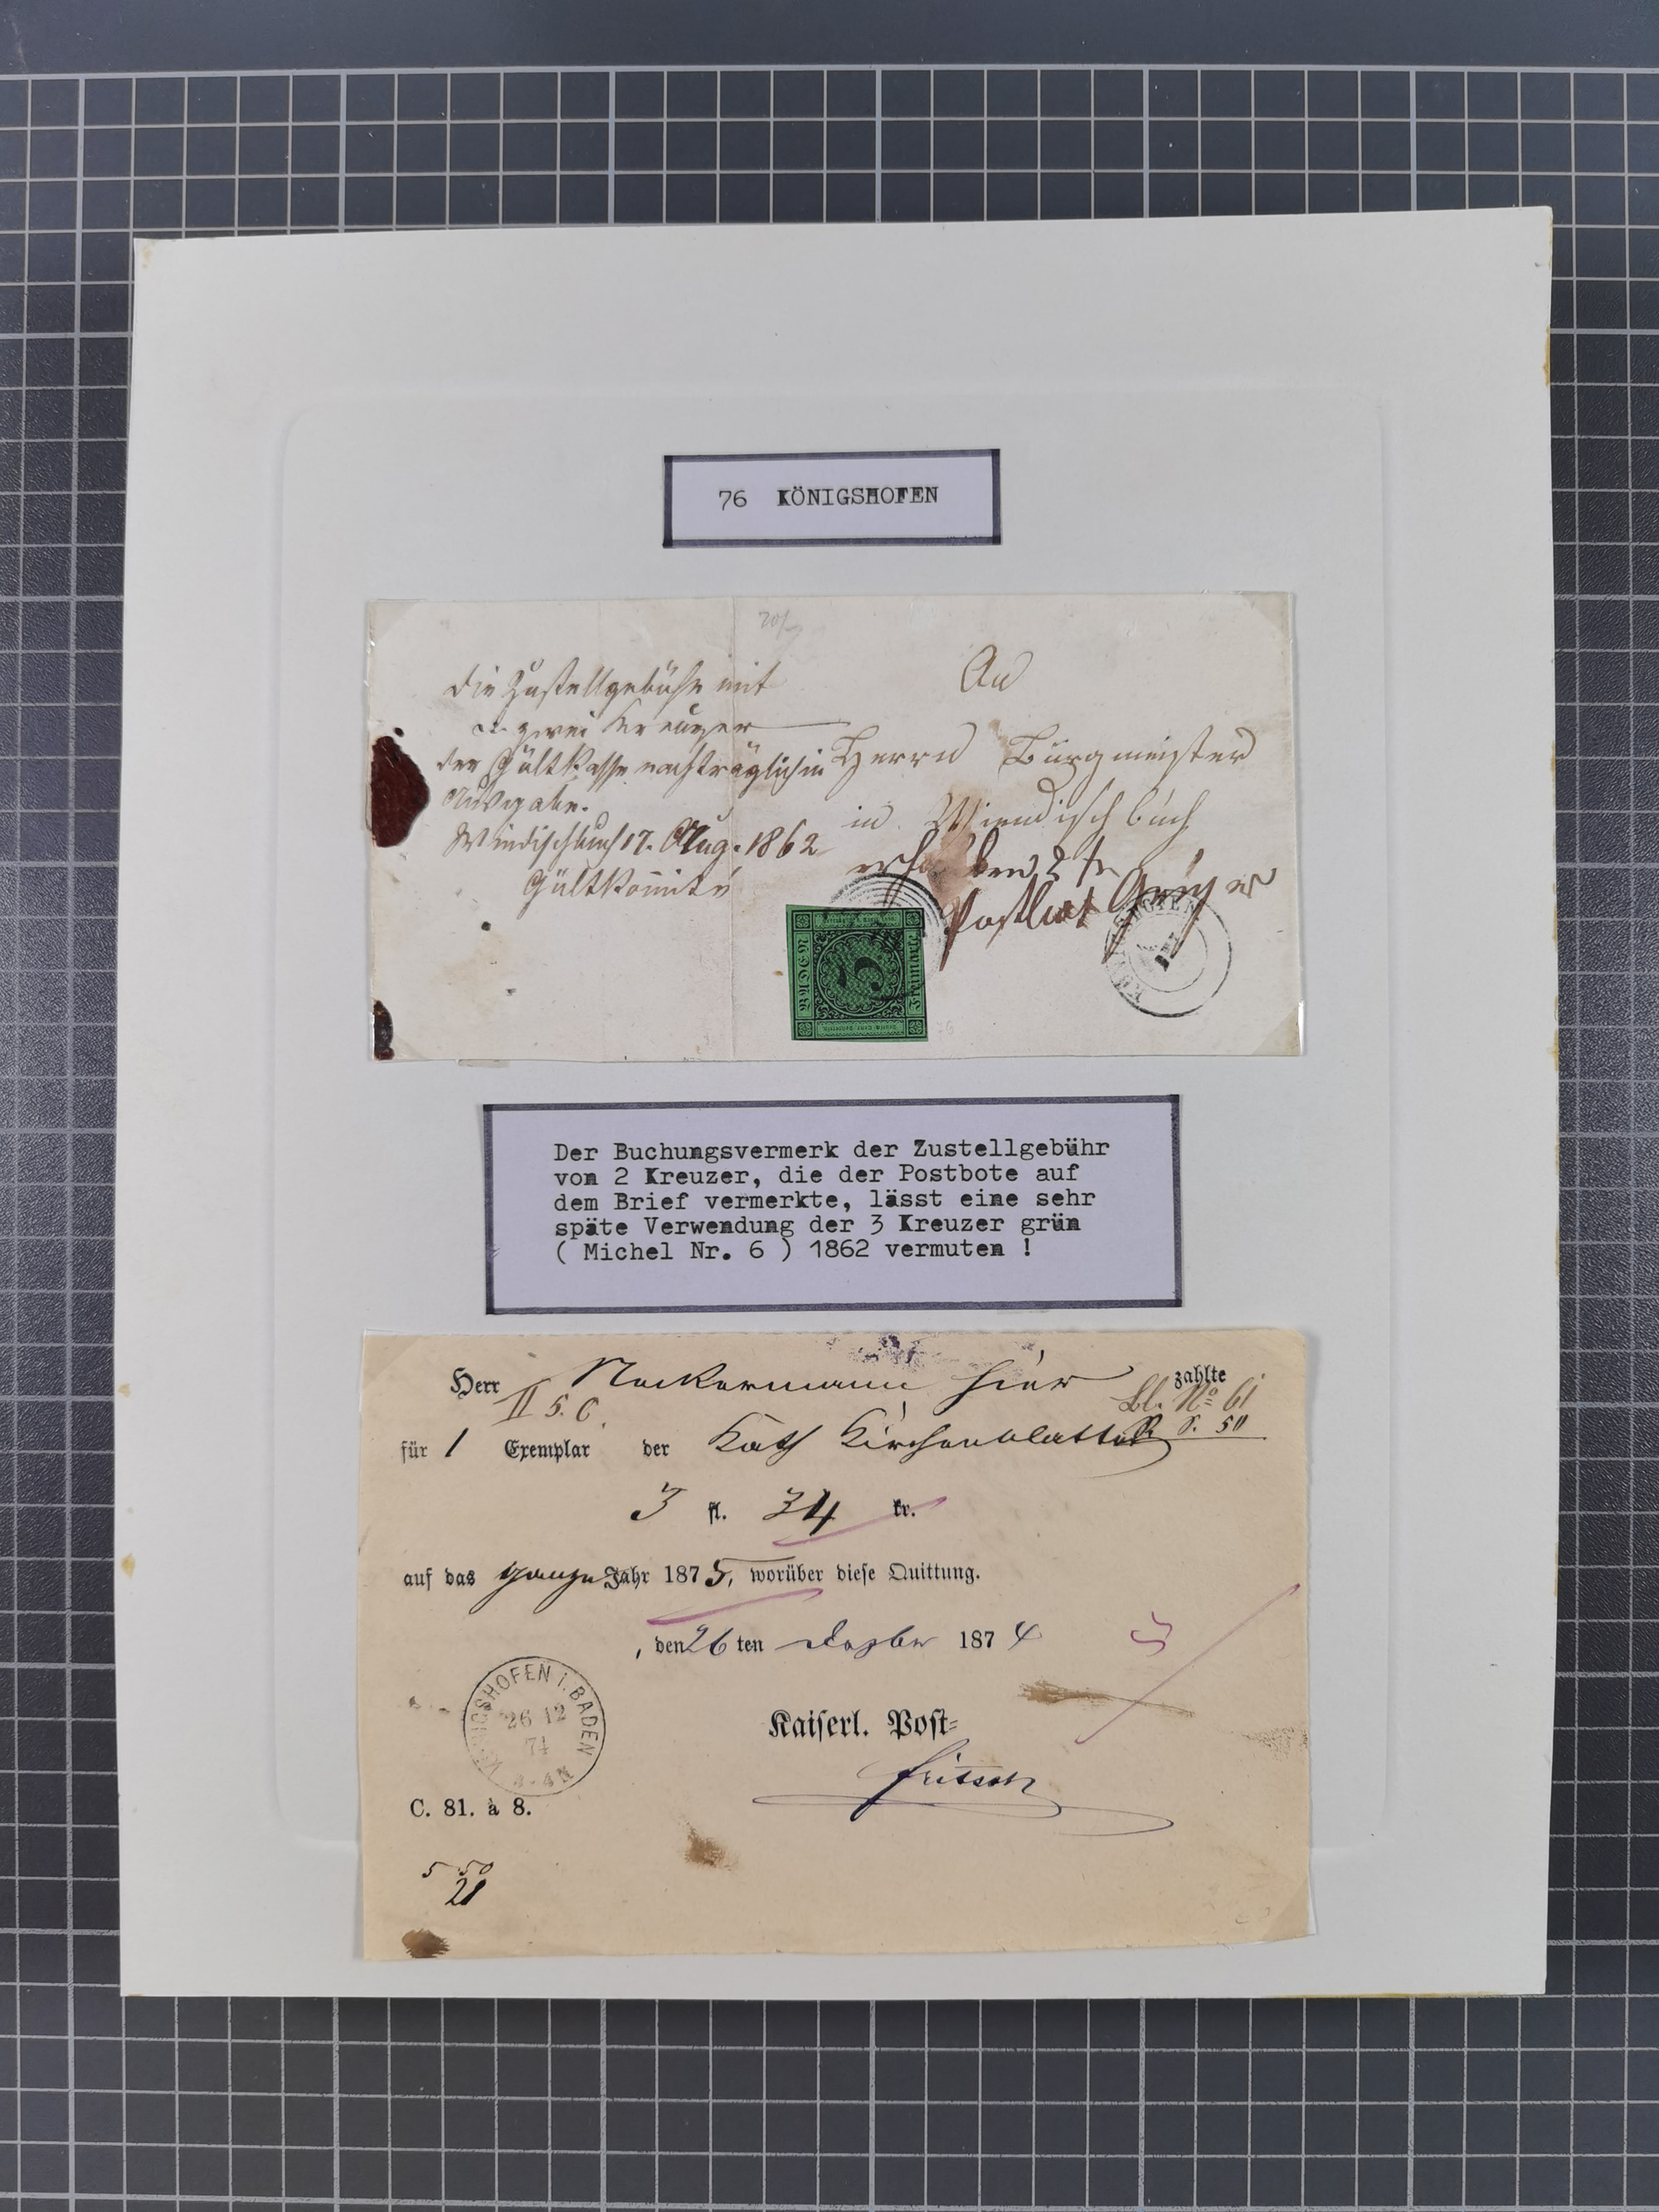 76 KÖNIGSHOFEN
die Zustellgebühr mit
zwei Kreuzer
der Gültkasse nachträglich in
Ausgabe.
Windischbuch 17. Aug. 1862
Gültkomité
An
Herrn Bürgmeister
in Windischbuch
erhoben 2 kr
Postbot
BADEN
3
Freimarke
Der Buchungsvermerk der Zustellgebühr
von 2 Kreuzer, die der Postbote auf
dem Brief vermerkte, lässt eine sehr
späte Verwendung der 3 Kreuzer grün
( Michel Nr. 6 ) 1862 vermuten !
Herr Neckermann hier zahlte
II 5. C. Bl. No 61
für 1 Exemplar der Kath Kirchenblattes R S. 50
3 fl. 34 kr.
auf das ganze Jahr 1875, worüber diese Quittung.
, den 26 ten Dezbr 1874
KÖNIGSHOFEN i. BADEN
26 12
74
3-4N
Kaiserl. Post-
Fritsch
C. 81. à 8.
5 50
21